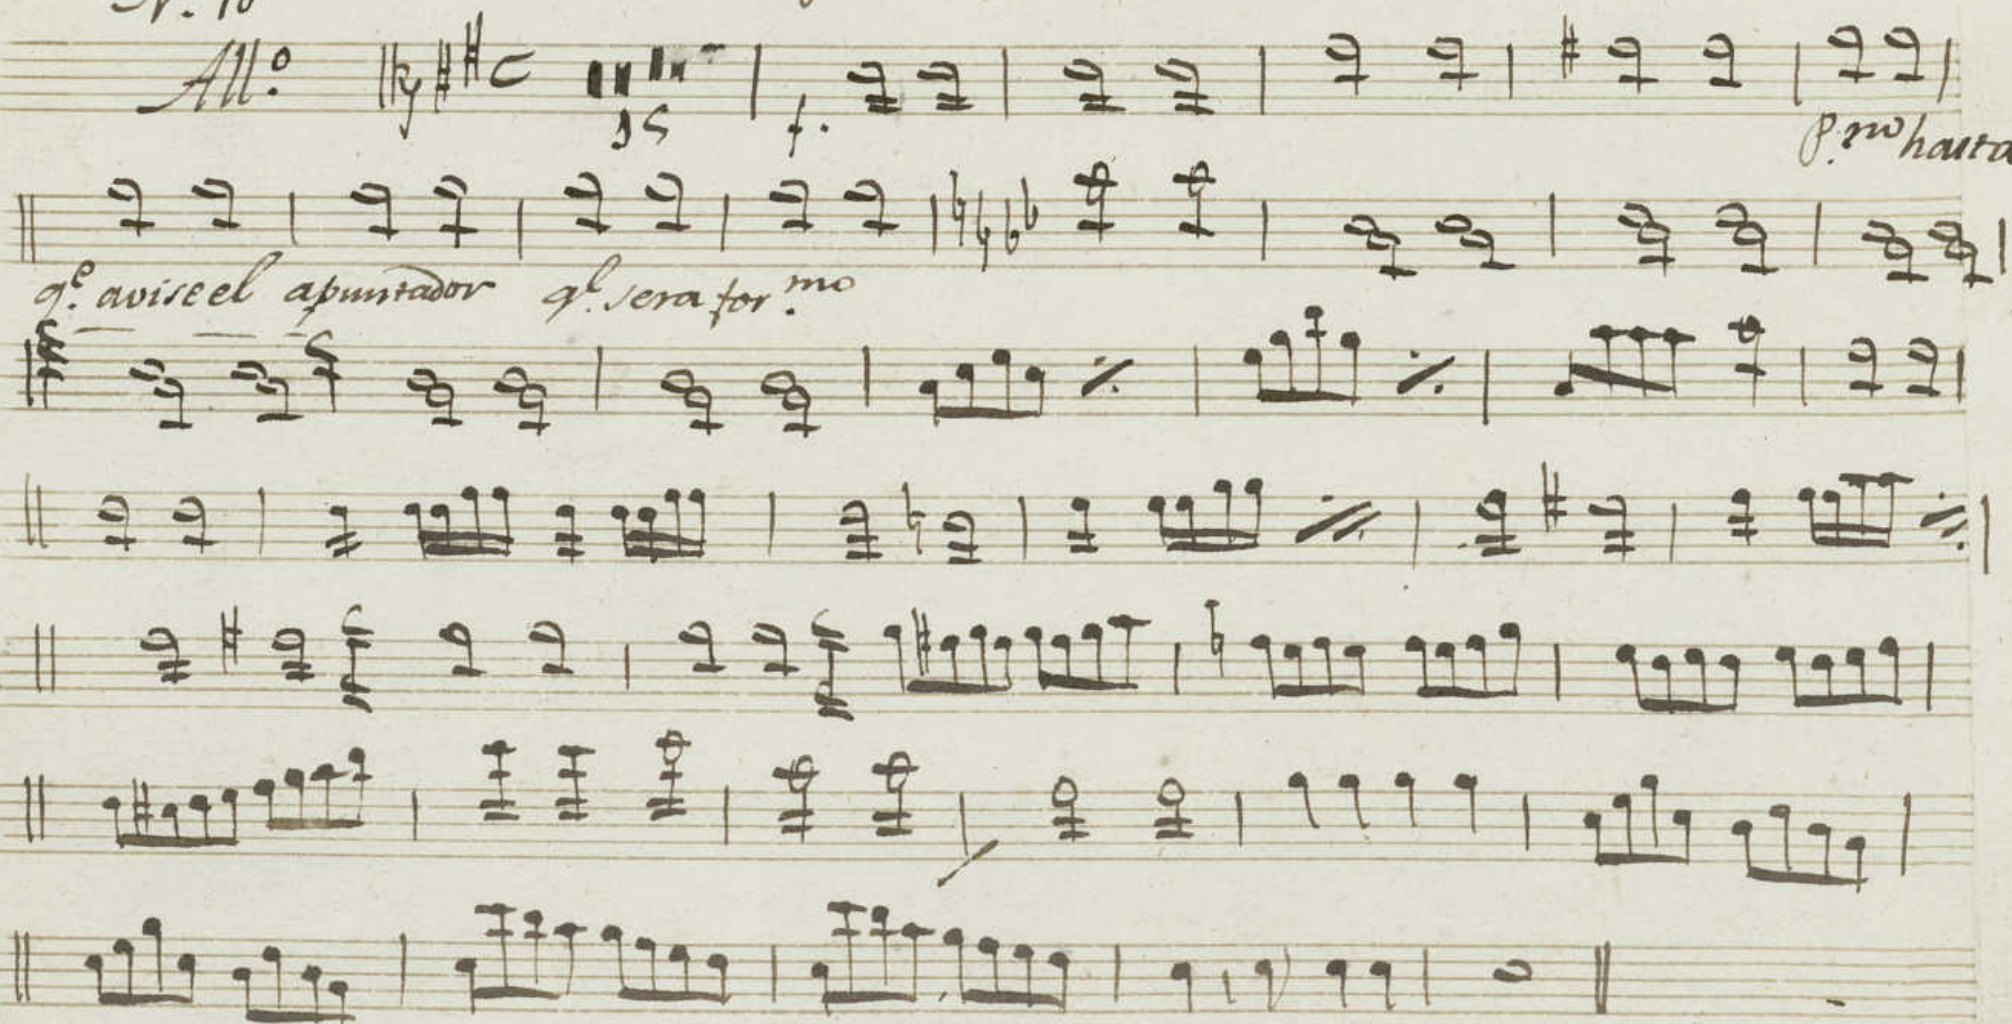 N.º 10
All.º
15
f.
P.mo hasta
q.e avise el apuntador q.l sera for.mo